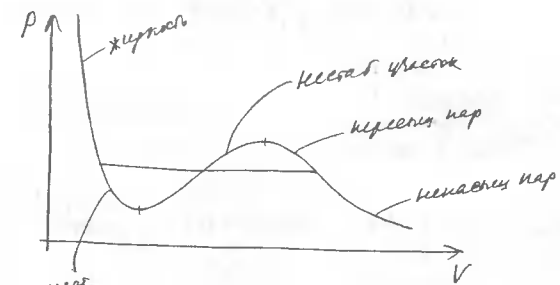 P
жидкость
нестаб участок
пересыщ пар
ненасыщ пар
V